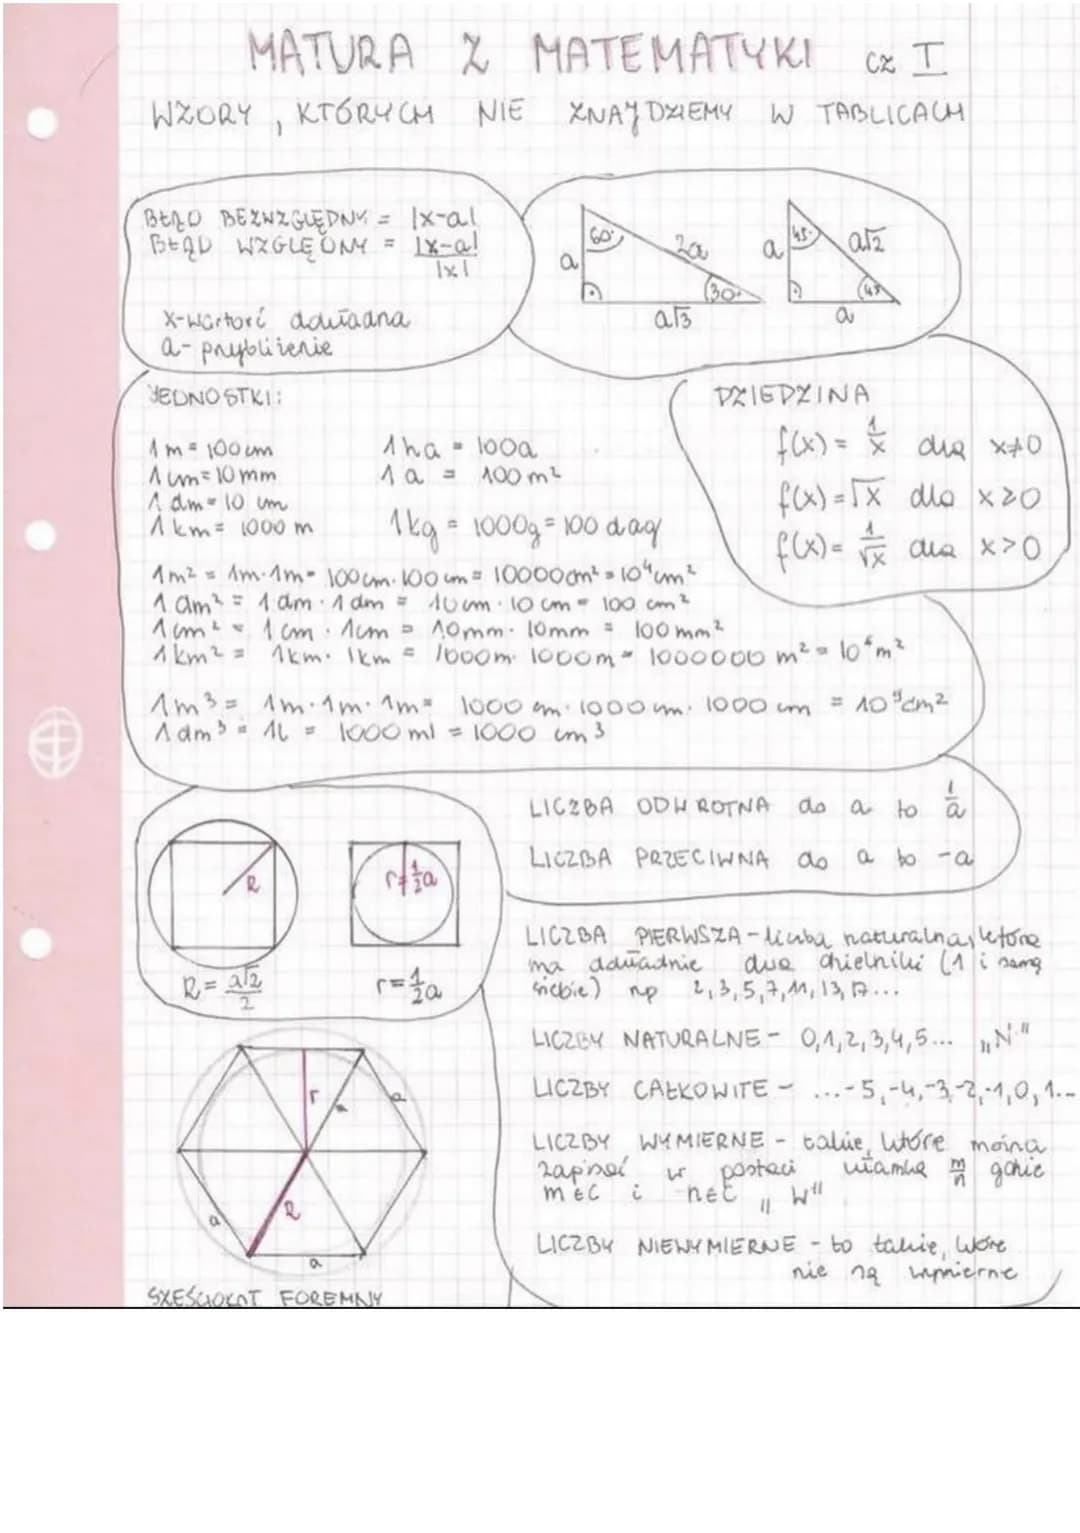 MATURA Z MATEMATYKI cz I
WZORY, KTÓRYCH NIE ZNAJDZIEMY W TABLICACH
BŁĄD BEZWZGLĘDNY = |x-a|
BŁĄD WZGLĘDNY = |x-a|
|x|
x-wartość dokładna
a- przybliżenie
60°
a
2a
30°
a√3
45°
a
a√2
45°
a
JEDNOSTKI:
1 m = 100 cm
1 cm = 10 mm
1 dm = 10 cm
1 km = 1000 m
1 ha = 100a
1 a = 100 m²
1 kg = 1000g = 100 dag
1m² = 1m·1m = 100cm·100cm = 10000cm² = 10⁴cm²
1 dm² = 1 dm · 1 dm = 10cm · 10 cm = 100 cm²
1 cm² = 1 cm · 1cm = 10mm · 10mm = 100 mm²
1 km² = 1km · 1km = 1000m · 1000m = 1000000 m² = 10⁶m²
1m³ = 1m·1m·1m = 1000 cm·1000 cm·1000 cm = 10⁹cm²
1 dm³ = 1l = 1000 ml = 1000 cm³
DZIEDZINA
f(x) = 1/x dla x≠0
f(x) = √x dla x≥0
f(x) = 1/√x dla x>0
R
R = a√2
2
r=½a
r=½a
LICZBA ODWROTNA do a to 1/a
LICZBA PRZECIWNA do a to -a
LICZBA PIERWSZA - liczba naturalna, która
ma dokładnie dwa dzielniki (1 i samą
siebie) np 2,3,5,7,11,13,17...
LICZBY NATURALNE - 0,1,2,3,4,5... „N"
LICZBY CAŁKOWITE - ...-5,-4,-3,-2,-1,0,1...
LICZBY WYMIERNE - takie, które można
zapisać w postaci ułamka m/n gdzie
m∈C i n∈C „W"
LICZBY NIEWYMIERNE - to takie, które
nie są wymierne
r
a
R
a
a
SZEŚCIOKĄT FOREMNY